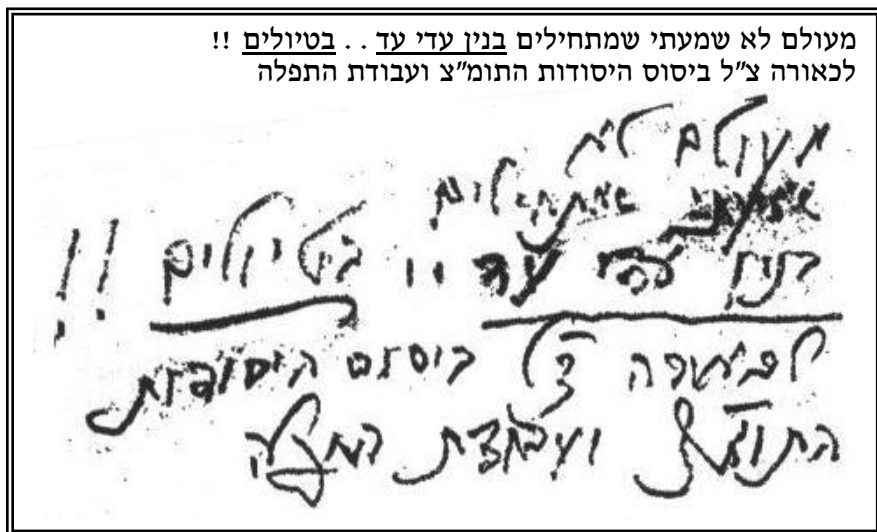 מעולם לא שמעתי שמתחילים בנין עדי עד . . בטיולים !!
לכאורה צ"ל ביסוס היסודות התומ"צ ועבודת התפלה
מעולם לא
שמעתי שמתחילים
בנין עדי עד . . בטיולים !!
לכאורה צ"ל ביסוס היסודות
התומ"צ ועבודת התפלה